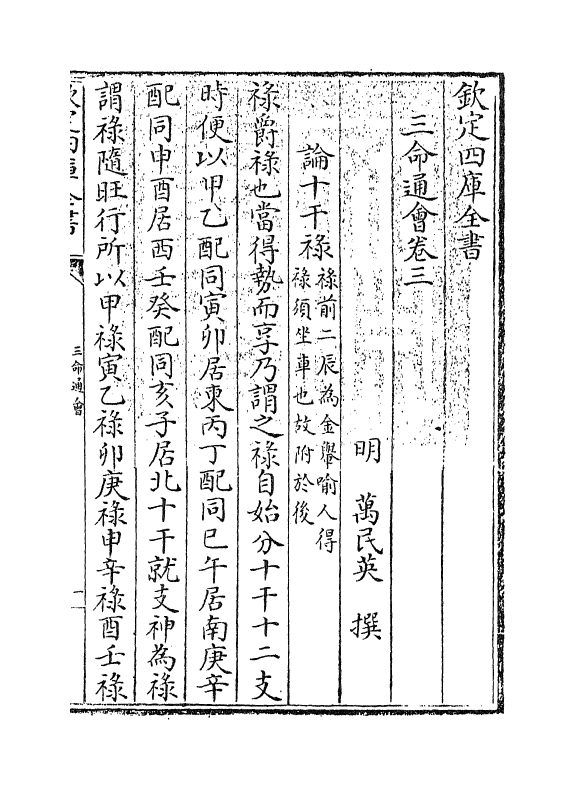 欽定四庫全書
三命通會卷三
明 萬民英 撰
論十干祿祿前二辰為金轝喻人得
祿須坐車也故附於後
祿爵祿也當得勢而享乃謂之祿自始分十干十二支
時便以甲乙配同寅卯居東丙丁配同巳午居南庚辛
配同申酉居西壬癸配同亥子居北十干就支神為祿
謂祿隨旺行所以甲祿寅乙祿卯庚祿申辛祿酉壬祿
欽定四庫全書
三命通會